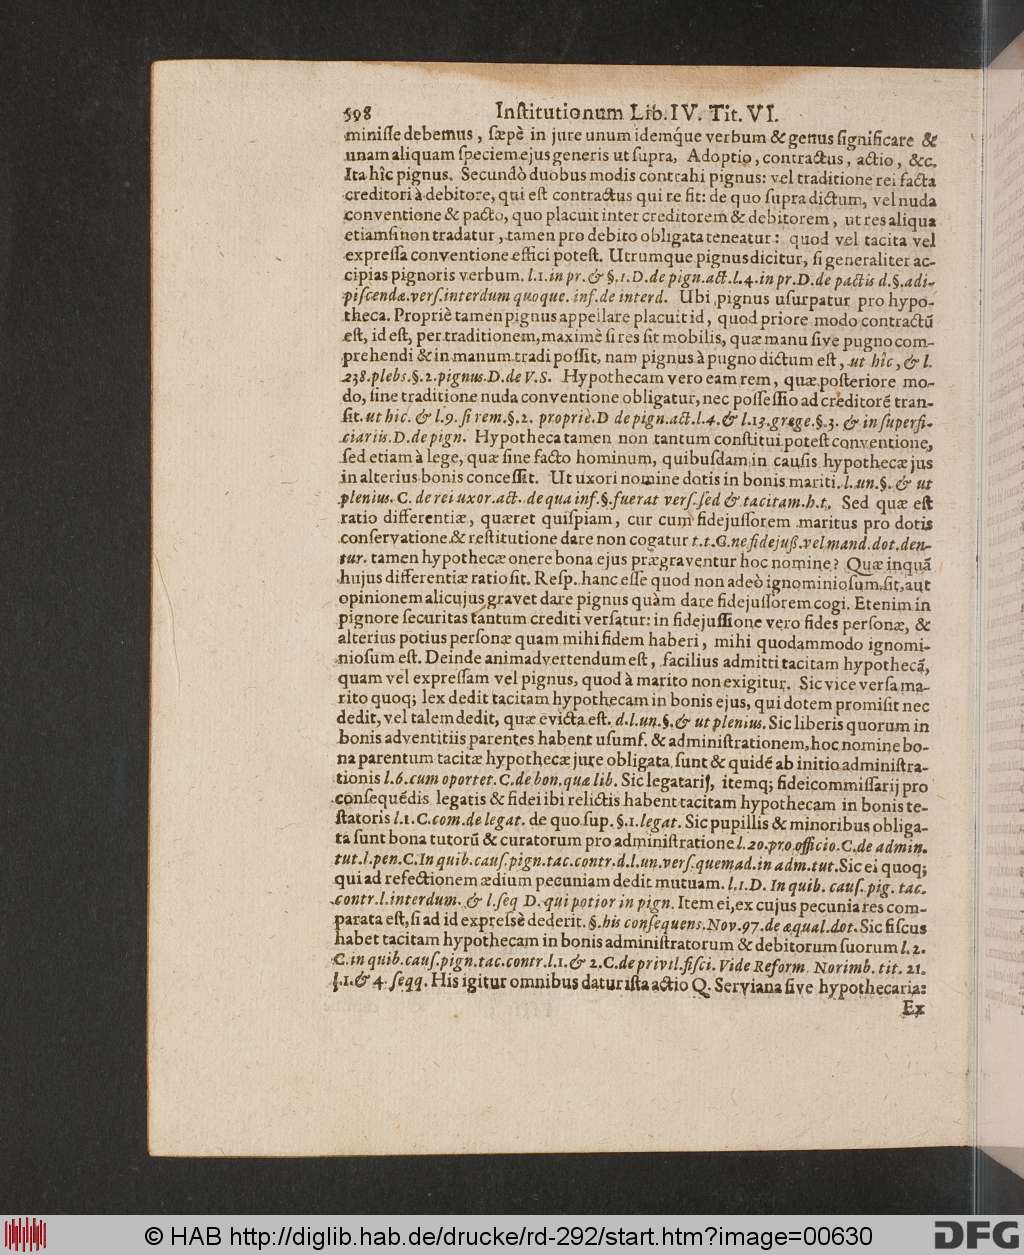 598 Inſtitutionum Lib. IV. Tit. VI.
miniſſe debemus, ſæpè in jure unum idemq́ue verbum & genus ſignificare &
unam aliquam ſpeciem ejus generis ut ſupra, Adoptio, contractus, actio, &c.
Ita hîc pignus. Secundò duobus modis contrahi pignus: vel traditione rei facta
creditori à debitore, qui eſt contractus qui re fit: de quo ſupra dictum, vel nuda
conventione & pacto, quo placuit inter creditorem & debitorem, ut res aliqua
etiamſi non tradatur, tamen pro debito obligata teneatur: quod vel tacita vel
expreſſa conventione effici poteſt. Utrumque pignus dicitur, ſi generaliter ac-
cipias pignoris verbum. l.1. in pr. & §.1. D. de pign. act. l.4. in pr. D. de pactis d.§. adi-
piſcendæ. verſ. interdum quoque. inf. de interd. Ubi pignus uſurpatur pro hypo-
theca. Propriè tamen pignus appellare placuit id, quod priore modo contractũ
eſt, id eſt, per traditionem, maximè ſi res ſit mobilis, quæ manu ſive pugno com-
prehendi & in manum tradi poſſit, nam pignus à pugno dictum eſt, ut hîc, & l.
238. plebs. §.2. pignus. D. de V.S. Hypothecam vero eam rem, quæ poſteriore mo-
do, ſine traditione nuda conventione obligatur, nec poſſeſſio ad creditorẽ tran-
ſit. ut hic. & l.9. ſi rem. §.2. propriè. D de pign. act. l.4. & l.13. grege. §.3. & in ſuperfi-
ciariis. D. de pign. Hypotheca tamen non tantum conſtitui poteſt conventione,
ſed etiam à lege, quæ ſine facto hominum, quibuſdam in cauſis hypothecæ jus
in alterius bonis conceſſit. Ut uxori nomine dotis in bonis mariti. l. un. §. & ut
plenius. C. de rei uxor. act. de qua inf. §. fuerat verſ. ſed & tacitam. h.t. Sed quæ eſt
ratio differentiæ, quæret quiſpiam, cur cum fidejuſſorem maritus pro dotis
conſervatione & reſtitutione dare non cogatur t.t. C. ne fidejuß. vel mand. dot. den-
tur. tamen hypothecæ onere bona ejus prægraventur hoc nomine? Quæ inquã
hujus differentiæ ratio ſit. Reſp. hanc eſſe quod non adeò ignominioſum ſit, aut
opinionem alicujus gravet dare pignus quàm dare fidejuſſorem cogi. Etenim in
pignore ſecuritas tantum crediti verſatur: in fidejuſſione vero fides perſonæ, &
alterius potius perſonæ quam mihi fidem haberi, mihi quodammodo ignomi-
nioſum eſt. Deinde animadvertendum eſt, facilius admitti tacitam hypothecã,
quam vel expreſſam vel pignus, quod à marito non exigitur. Sic vice verſa ma-
rito quoq; lex dedit tacitam hypothecam in bonis ejus, qui dotem promiſit nec
dedit, vel talem dedit, quæ evicta eſt. d.l. un. §. & ut plenius. Sic liberis quorum in
bonis adventitiis parentes habent uſumf. & adminiſtrationem, hoc nomine bo-
na parentum tacitæ hypothecæ jure obligata ſunt & quidẽ ab initio adminiſtra-
tionis l.6. cum oportet. C. de bon. quæ lib. Sic legatarij, itemq; fideicommiſſarij pro
conſequẽdis legatis & fidei ibi relictis habent tacitam hypothecam in bonis te-
ſtatoris l.1. C. com. de legat. de quo ſup. §.1. legat. Sic pupillis & minoribus obliga-
ta ſunt bona tutorũ & curatorum pro adminiſtratione l.20. pro officio. C. de admin.
tut. l. pen. C. In quib. cauſ. pign. tac. contr. d.l. un. verſ. quemad. in adm. tut. Sic ei quoq;
qui ad refectionem ædium pecuniam dedit mutuam. l.1. D. In quib. cauſ. pig. tac.
contr. l. interdum. & l. ſeq D. qui potior in pign. Item ei, ex cujus pecunia res com-
parata eſt, ſi ad id expreſsè dederit. §. his conſequens. Nov. 97. de æqual. dot. Sic fiſcus
habet tacitam hypothecam in bonis adminiſtratorum & debitorum ſuorum l.2.
C. in quib. cauſ. pign. tac. contr. l.1. & 2. C. de privil. fiſci. Vide Reform. Norimb. tit. 21.
l.1. & 4. ſeqq. His igitur omnibus datur iſta actio Q. Serviana ſive hypothecaria:
Ex
© HAB http://diglib.hab.de/drucke/rd-292/start.htm?image=00630
DFG